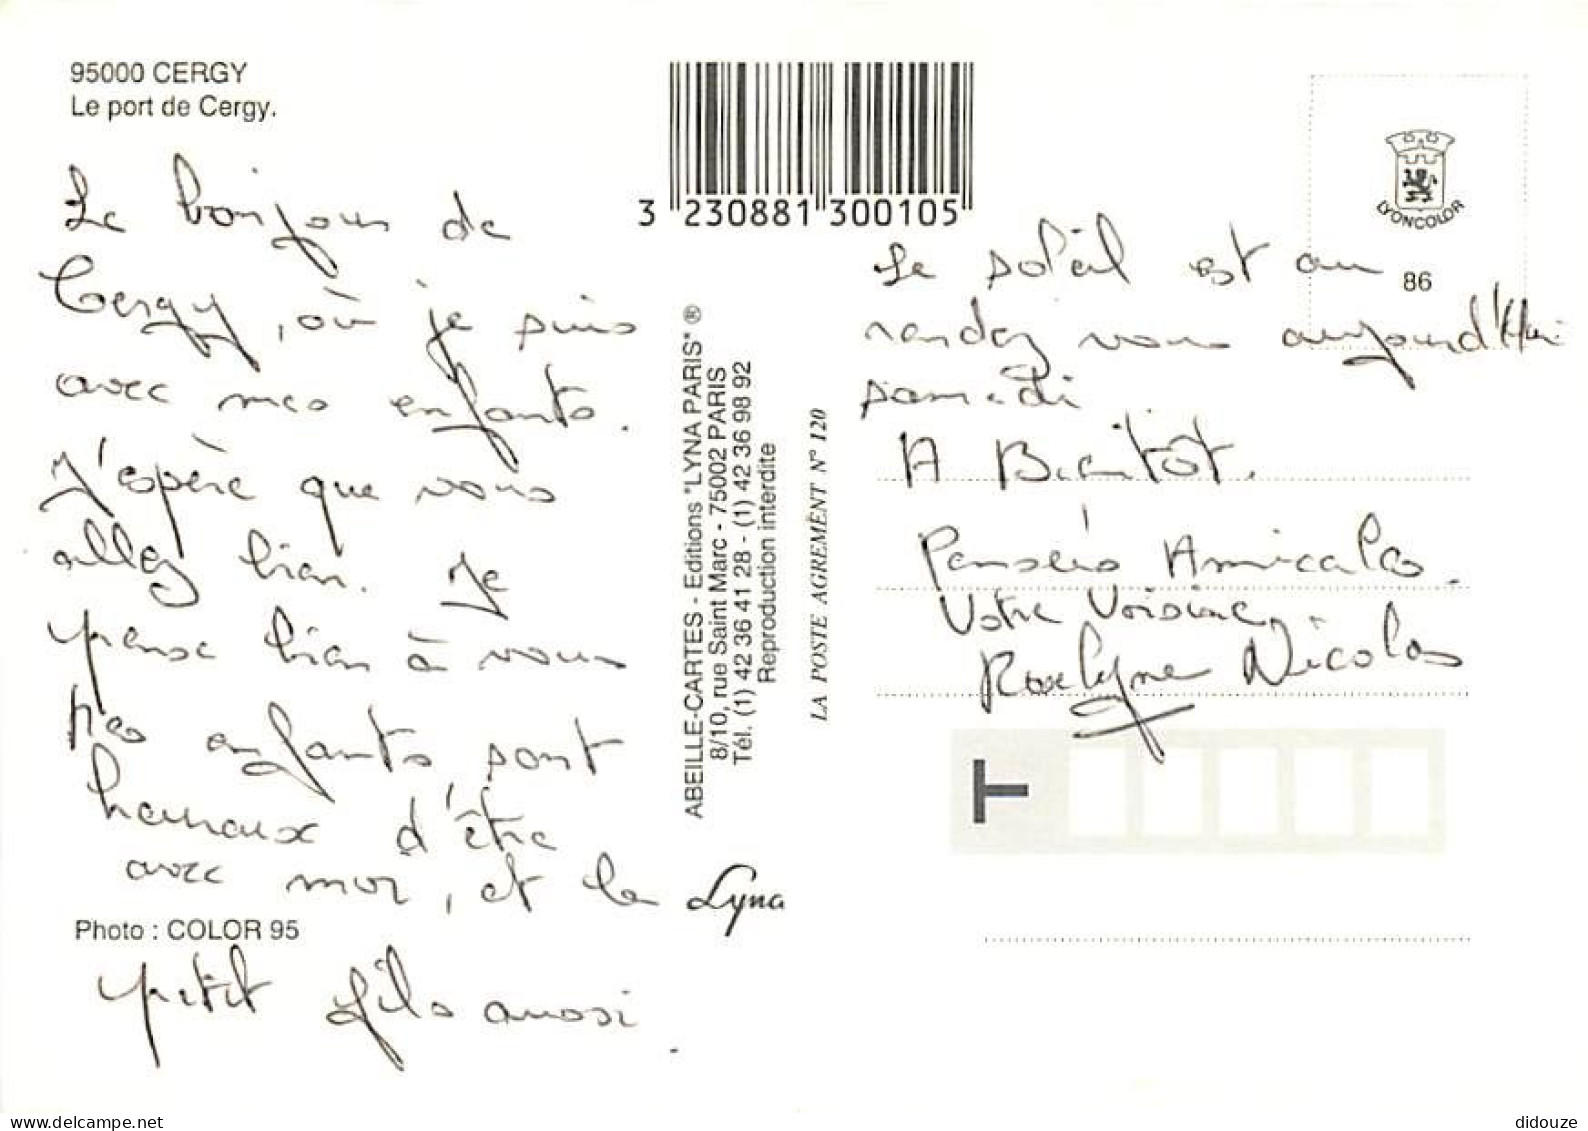 95000 CERGY
Le port de Cergy.
Le bonjour de
Cergy, où je suis
avec mes enfants.
J'espère que vous
allez bien. Je
pense bien à vous
Mes enfants sont
heureux d'être
avec moi, et le
Photo : COLOR 95
petit fils aussi.
3 230881 300105
ABEILLE-CARTES - Editions "LYNA PARIS" ®
8/10, rue Saint Marc - 75002 PARIS
Tél. (1) 42 36 41 28 - (1) 42 36 98 92
Reproduction interdite
Lyna
LA POSTE AGREMENT N° 120
LYONCOLOR
86
Le soleil est au
rendez vous aujourd'Hui
samedi
A Bientôt.
Pensées Amicales.
Votre Voisine,
Roselyne Nicolas
T
didouze